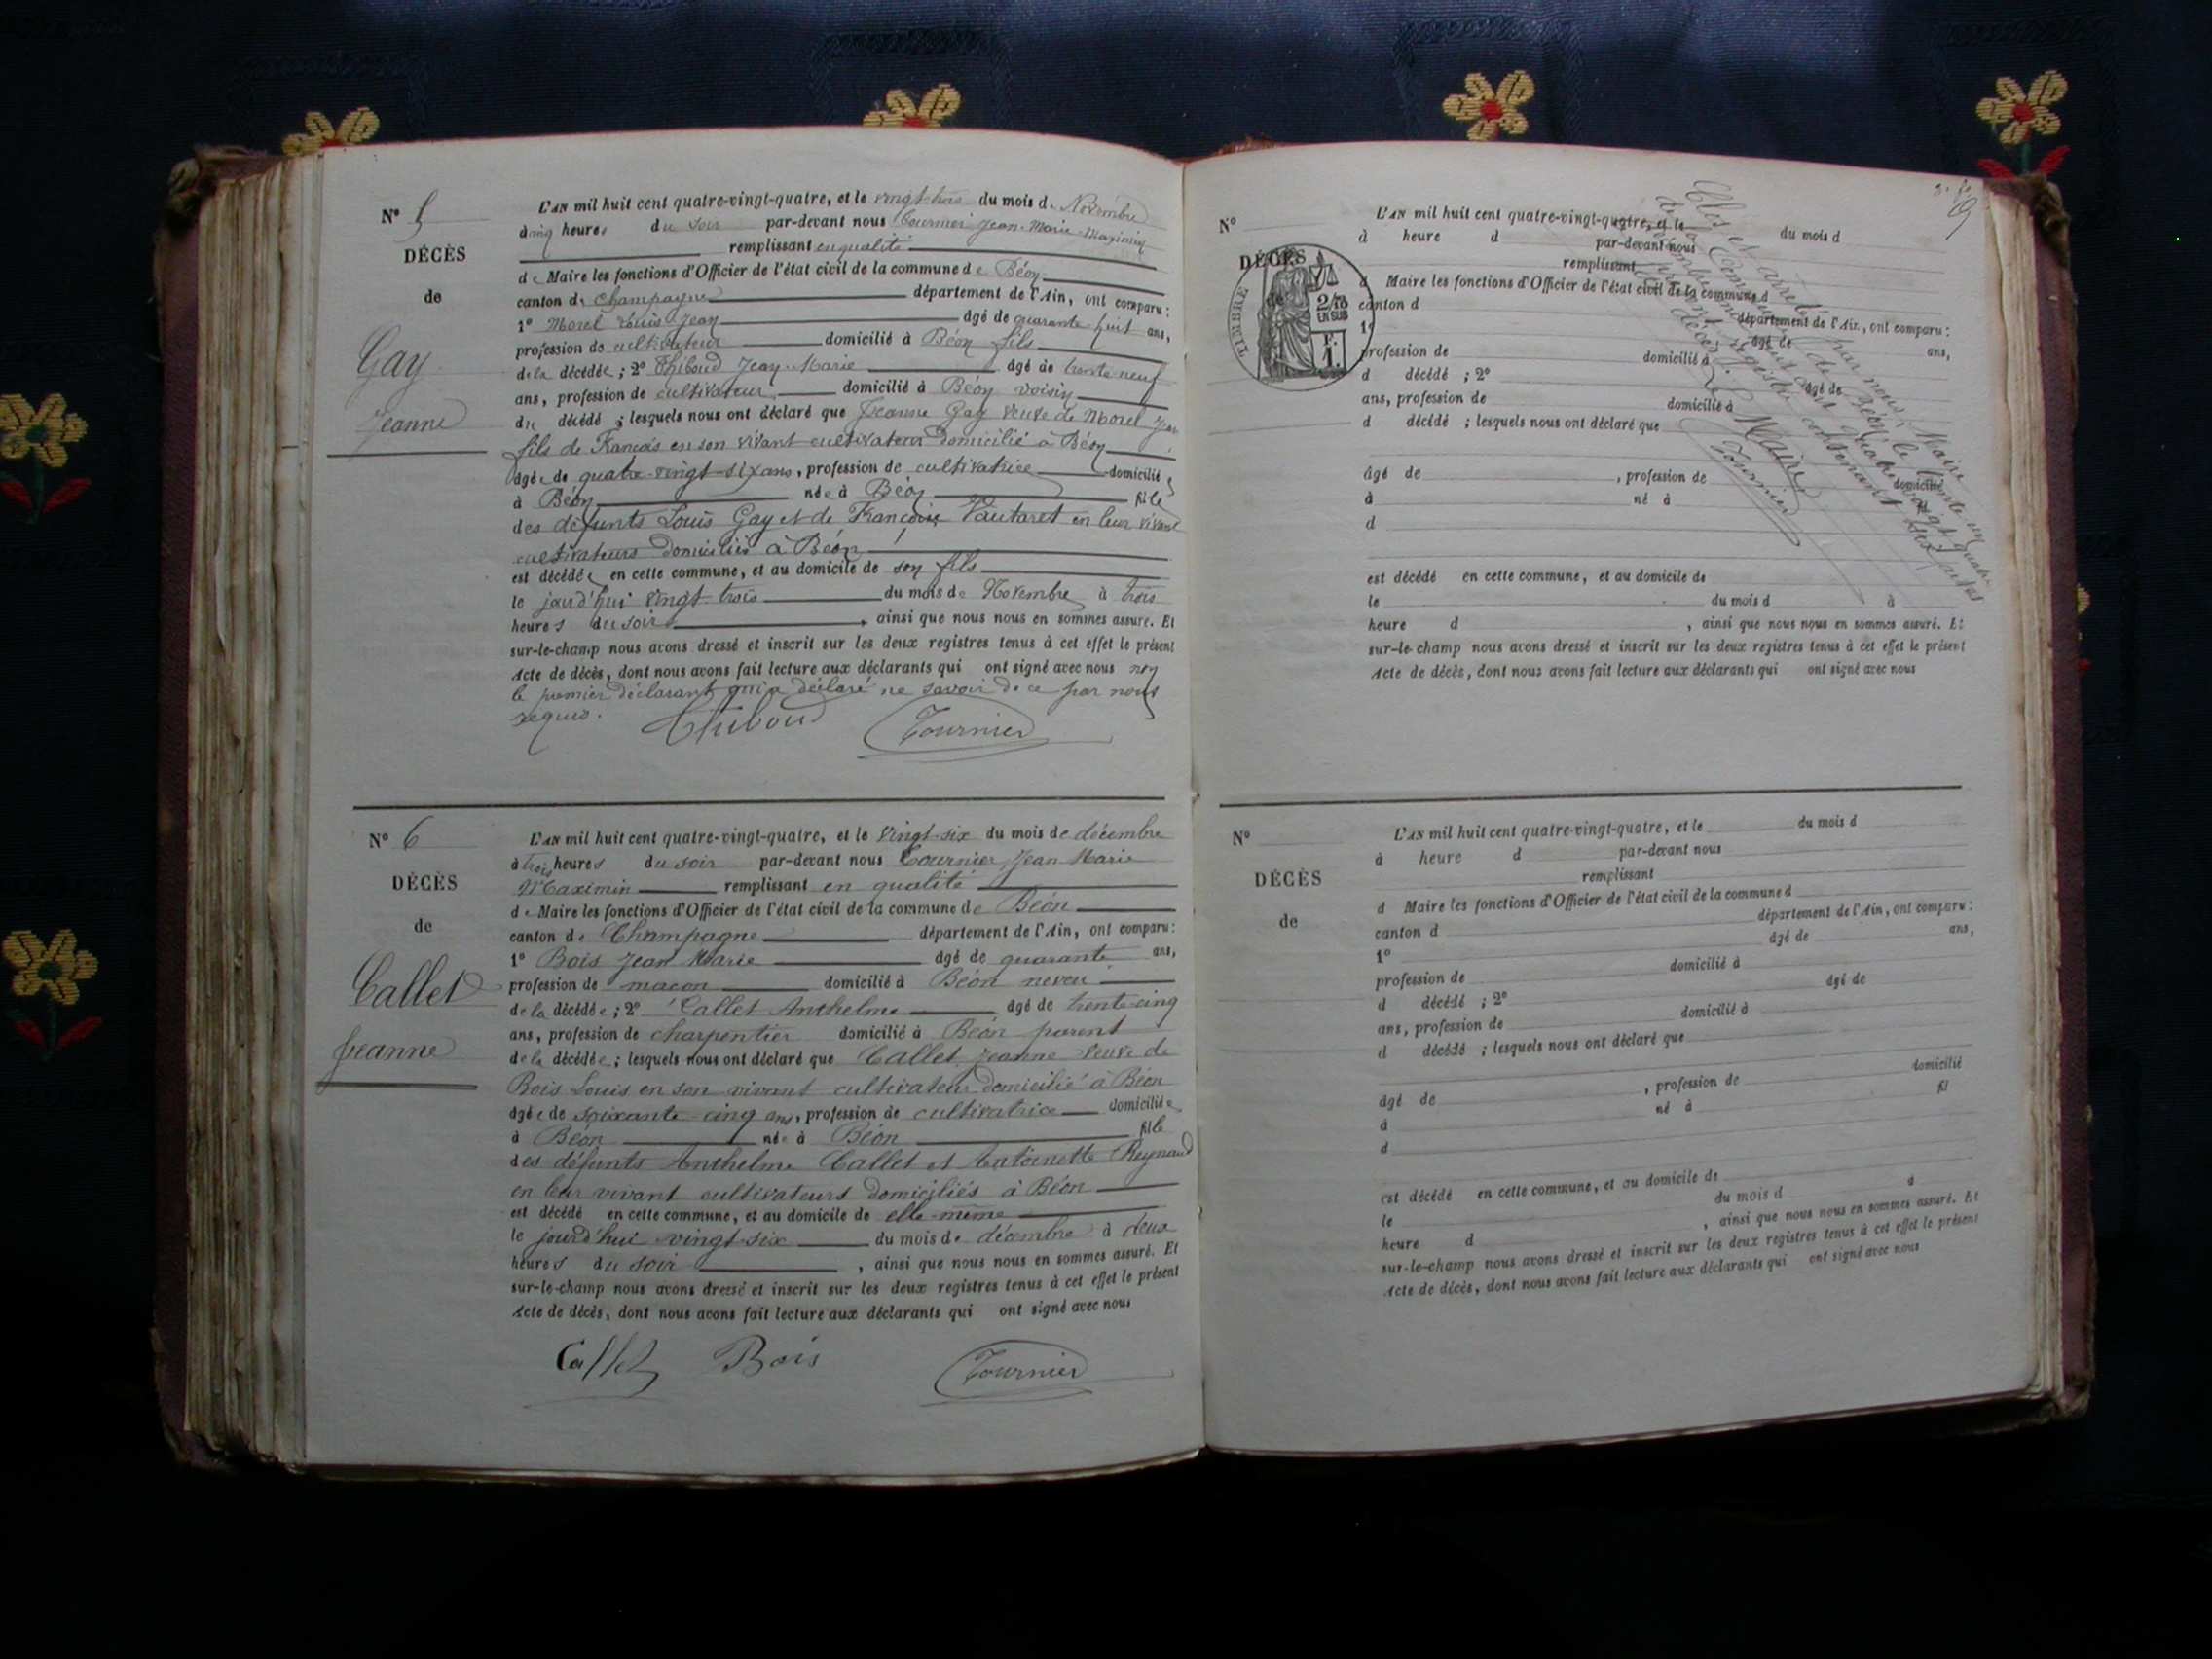 N° 5
DÉCÈS
de
Gay
Jeanne
L'AN mil huit cent quatre-vingt-quatre, et le vingt-trois du mois de Novembre
à cinq heures du soir par-devant nous Tournier Jean-Marie-Maximin
remplissant en qualité
de Maire les fonctions d'Officier de l'état civil de la commune de Béon
canton de Champagne département de l'Ain, ont comparu :
1° Morel Louis Jean âgé de quarante huit ans,
profession de cultivateur domicilié à Béon fils
de la décédée ; 2° Thiboud Jean-Marie âgé de trente neuf
ans, profession de cultivateur domicilié à Béon voisin
du décédé ; lesquels nous ont déclaré que Jeanne Gay veuve de Morel Jean
fils de François en son vivant cultivateur domicilié à Béon
âgée de quatre-vingt-six ans, profession de cultivatrice domiciliée
à Béon née à Béon fille
des défunts Louis Gay et de Françoise Vautaret en leur vivant
cultivateurs domiciliés à Béon
est décédée en cette commune, et au domicile de son fils
le jourd'hui vingt-trois du mois de Novembre à trois
heures du soir, ainsi que nous nous en sommes assuré. Et
sur-le-champ nous avons dressé et inscrit sur les deux registres tenus à cet effet le présent
Acte de décès, dont nous avons fait lecture aux déclarants qui ont signé avec nous non
le premier déclarant qui a déclaré ne savoir de ce par nous
requis.
Thiboud Tournier
N° 6
DÉCÈS
de
Callet
Jeanne
L'AN mil huit cent quatre-vingt-quatre, et le vingt-six du mois de décembre
à trois heures du soir par-devant nous Tournier Jean Marie
Maximin remplissant en qualité
de Maire les fonctions d'Officier de l'état civil de la commune de Béon
canton de Champagne département de l'Ain, ont comparu :
1° Bois Jean Marie âgé de quarante ans,
profession de maçon domicilié à Béon neveu
de la décédée ; 2° Callet Anthelme âgé de trente-cinq
ans, profession de charpentier domicilié à Béon parent
de la décédée ; lesquels nous ont déclaré que Callet Jeanne veuve de
Bois Louis en son vivant cultivateur domicilié à Béon
âgée de soixante-cinq ans, profession de cultivatrice domiciliée
à Béon née à Béon fille
des défunts Anthelme Callet et Antoinette Reynaud
en leur vivant cultivateurs domiciliés à Béon
est décédé en cette commune, et au domicile de elle-même
le jourd'hui vingt-six du mois de décembre à deux
heures du soir, ainsi que nous nous en sommes assuré. Et
sur-le-champ nous avons dressé et inscrit sur les deux registres tenus à cet effet le présent
Acte de décès, dont nous avons fait lecture aux déclarants qui ont signé avec nous
Callet Bois Tournier
N°
DÉCÈS
de
TIMBRE
2/10
EN SUS
L'AN mil huit cent quatre-vingt-quatre, et le du mois d
à heure d par-devant nous
remplissant
d Maire les fonctions d'Officier de l'état civil de la commune d
canton d département de l'Ain, ont comparu :
1° âgé de ans,
profession de domicilié à
d décédé ; 2° âgé de
ans, profession de domicilié à
d décédé ; lesquels nous ont déclaré que
âgé de , profession de domicilié
à né à
d
est décédé en cette commune, et au domicile de
le du mois d à
heure d , ainsi que nous nous en sommes assuré. Et
sur-le-champ nous avons dressé et inscrit sur les deux registres tenus à cet effet le présent
Acte de décès, dont nous avons fait lecture aux déclarants qui ont signé avec nous
Clos et arrêté par nous, Maire
de la Commune de Béon, le trente un
décembre mil huit cent quatre-vingt-quatre
le présent registre contenant six actes
de décès.
Le Maire
Tournier
N°
DÉCÈS
de
L'AN mil huit cent quatre-vingt-quatre, et le du mois d
à heure d par-devant nous
remplissant
d Maire les fonctions d'Officier de l'état civil de la commune d
canton d département de l'Ain, ont comparu :
1° âgé de ans,
profession de domicilié à
d décédé ; 2° âgé de
ans, profession de domicilié à
d décédé ; lesquels nous ont déclaré que
âgé de , profession de domicilié
à né à fil
d
est décédé en cette commune, et au domicile de
le du mois d à
heure d , ainsi que nous nous en sommes assuré. Et
sur-le-champ nous avons dressé et inscrit sur les deux registres tenus à cet effet le présent
Acte de décès, dont nous avons fait lecture aux déclarants qui ont signé avec nous